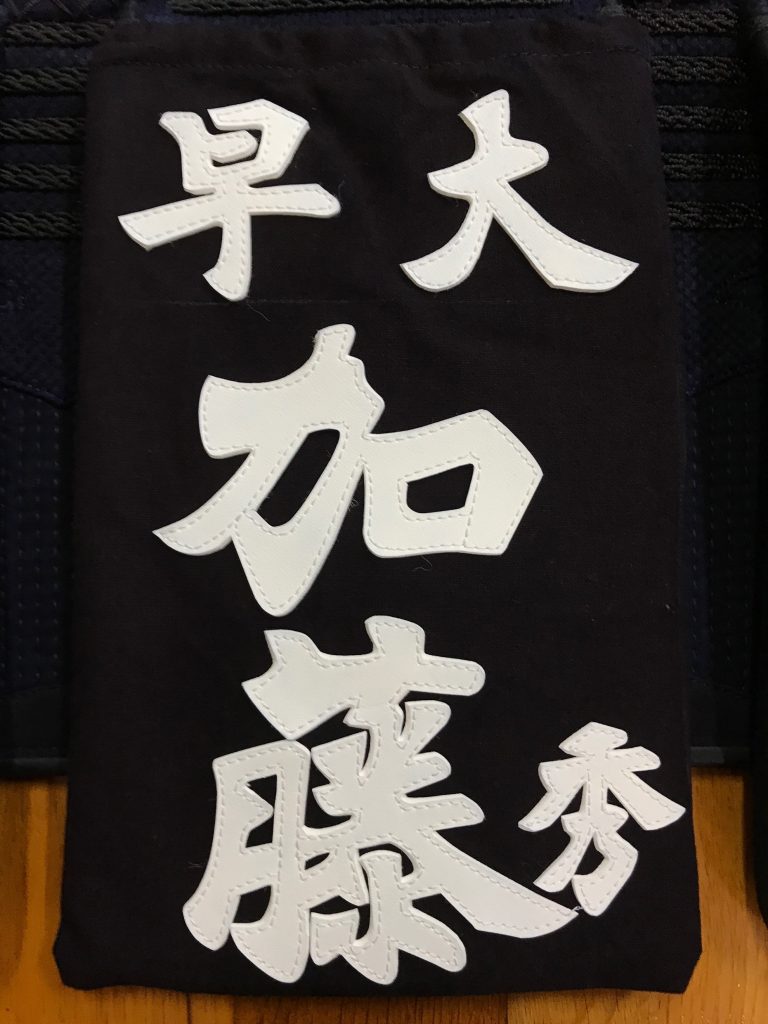 早大
加藤秀